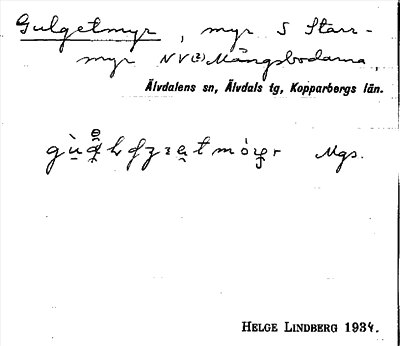 Gulgetmyr, myr S Starr-
myr NV(2) Mångsbodarna,
Älvdalens sn, Älvdals tg, Kopparbergs län.
Mgs.
HELGE LINDBERG 1934.